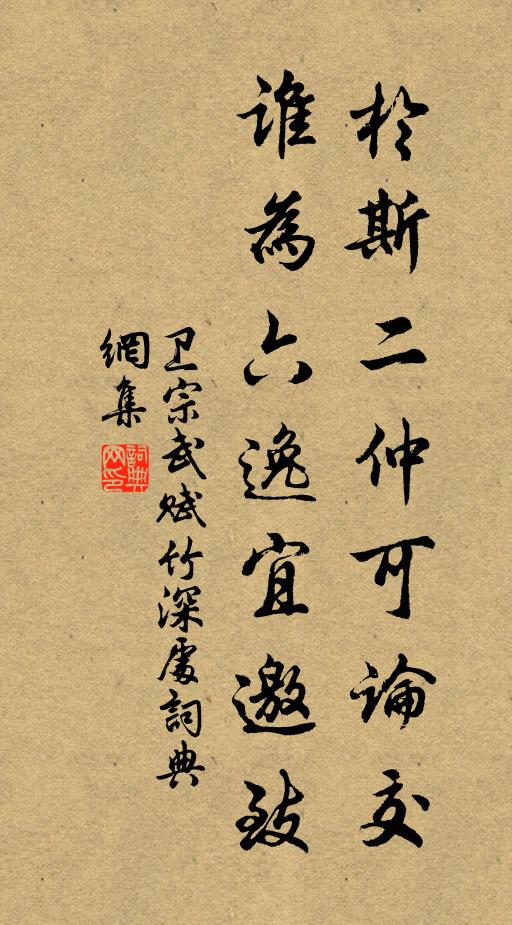 於斯二仲可論交
誰為六逸宜邀致
卫宗武赋竹深處詞典
網集
詞典网印